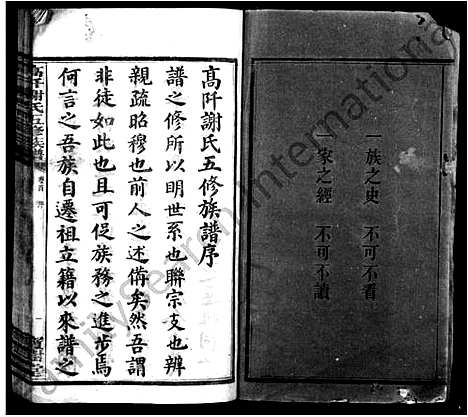 一族之史 不可不看
一家之經 不可不讀
高阡謝氏五修族譜序
譜之修所以明世系也聯宗支也辨
親疏昭穆也前人之述備矣然吾謂
非徒如此也且可促族務之進步焉
何言之吾族自遷祖立籍以來譜之
高阡謝氏五修族譜